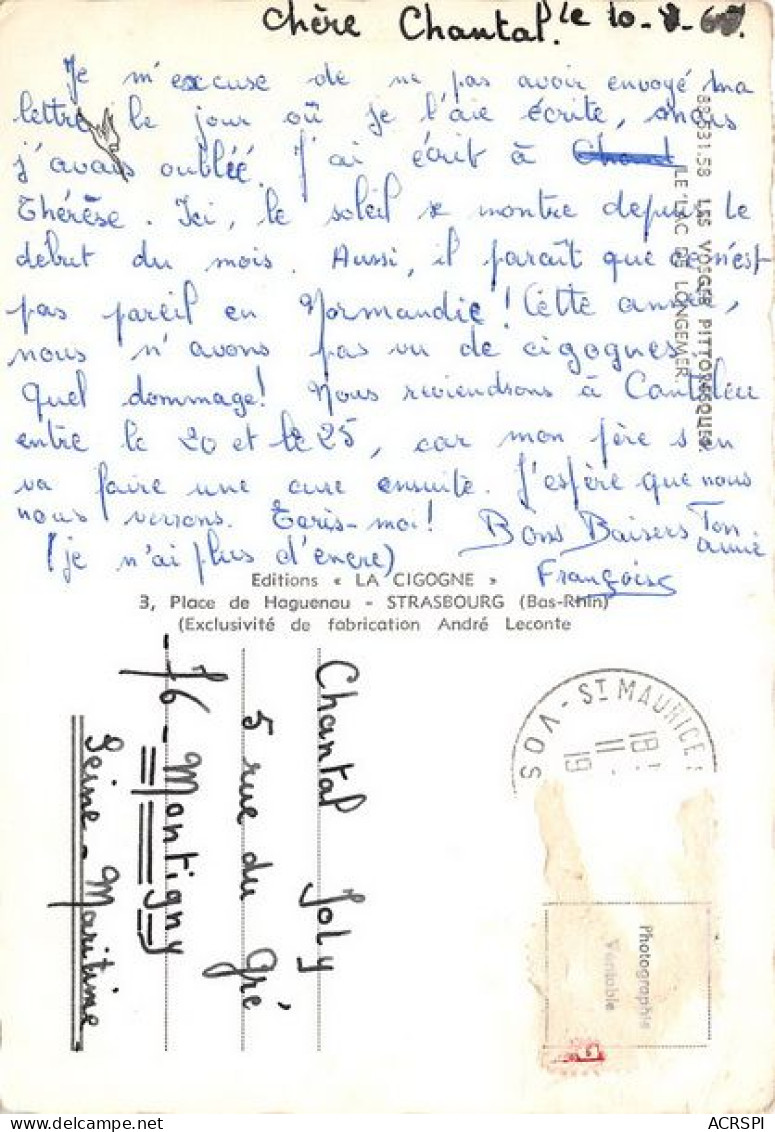 Chère Chantal. le 10-8-67.
Je m'excuse de ne pas avoir envoyé ma
lettre le jour où je l'aie écrite, mais
j'avais oubliée. J'ai écrit à Chant
Thérèse. Ici, le soleil se montre depuis le
début du mois. Aussi, il paraît que ce n'est
pas pareil en Normandie! Cette année,
nous n'avons pas vu de cigognes.
Quel dommage! Nous reviendrons à Canteleu
entre le 20 et le 25, car mon père s'en
va faire une cure ensuite. J'espère que nous
nous verrons. Ecris-moi! Bons Baisers Ton
amie
(je n'ai plus d'encre) Françoise
88.531.58 LES VOSGES PITTORESQUES.
LE LAC DE LONGEMER.
Editions « LA CIGOGNE »
3, Place de Haguenau - STRASBOURG (Bas-Rhin)
(Exclusivité de fabrication André Leconte
Chantal Joly
5 rue du Gré
-76- Montigny
Seine-Maritime
ST MAURICE
18
11
19
Photographie
Véritable
ACRSPI